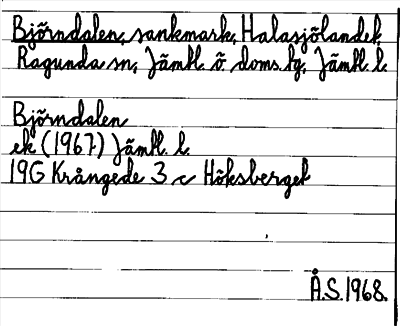 Björndalen, sankmark, Halasjölandet
Ragunda sn, Jämtl. ö. doms. lg, Jämtl. l.
Björndalen
ek (1967) Jämtl. l.
19G Krångede 3 c Höksberget
Å.S. 1968.